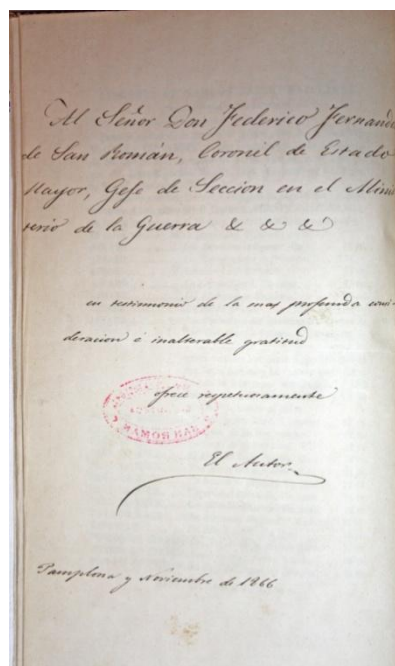 Al Señor Don Federico Fernand
de San Román, Coronél de Estado
Mayor, Gefe de Seccion en el Minis
terio de la Guerra & & &
en testimonio de la mas profunda consi-
deracion é inalterable gratitud
ofrece respetuosamente
SAN ROMAN
El Autor
Pamplona y Noviembre de 1866